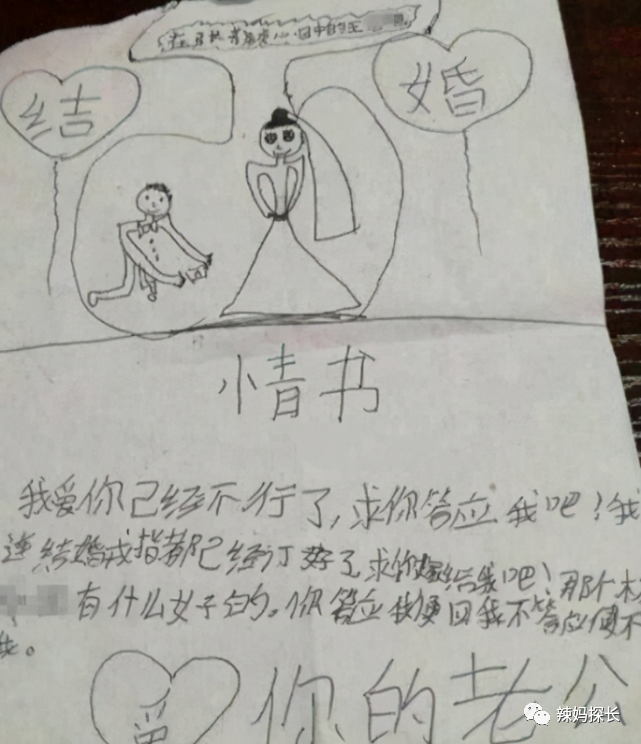 心目中的王
结 婚
小情书
我爱你已经不行了,求你答应我吧!我
连结婚戒指都已经订好了,求你嫁给我吧!那个
有什么好的。你答应我便回我不答应便不
爱 你的老公
辣妈探长